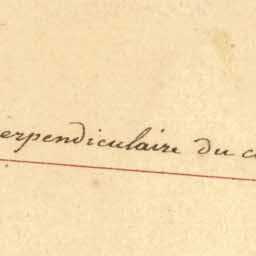 erpendiculaire du c